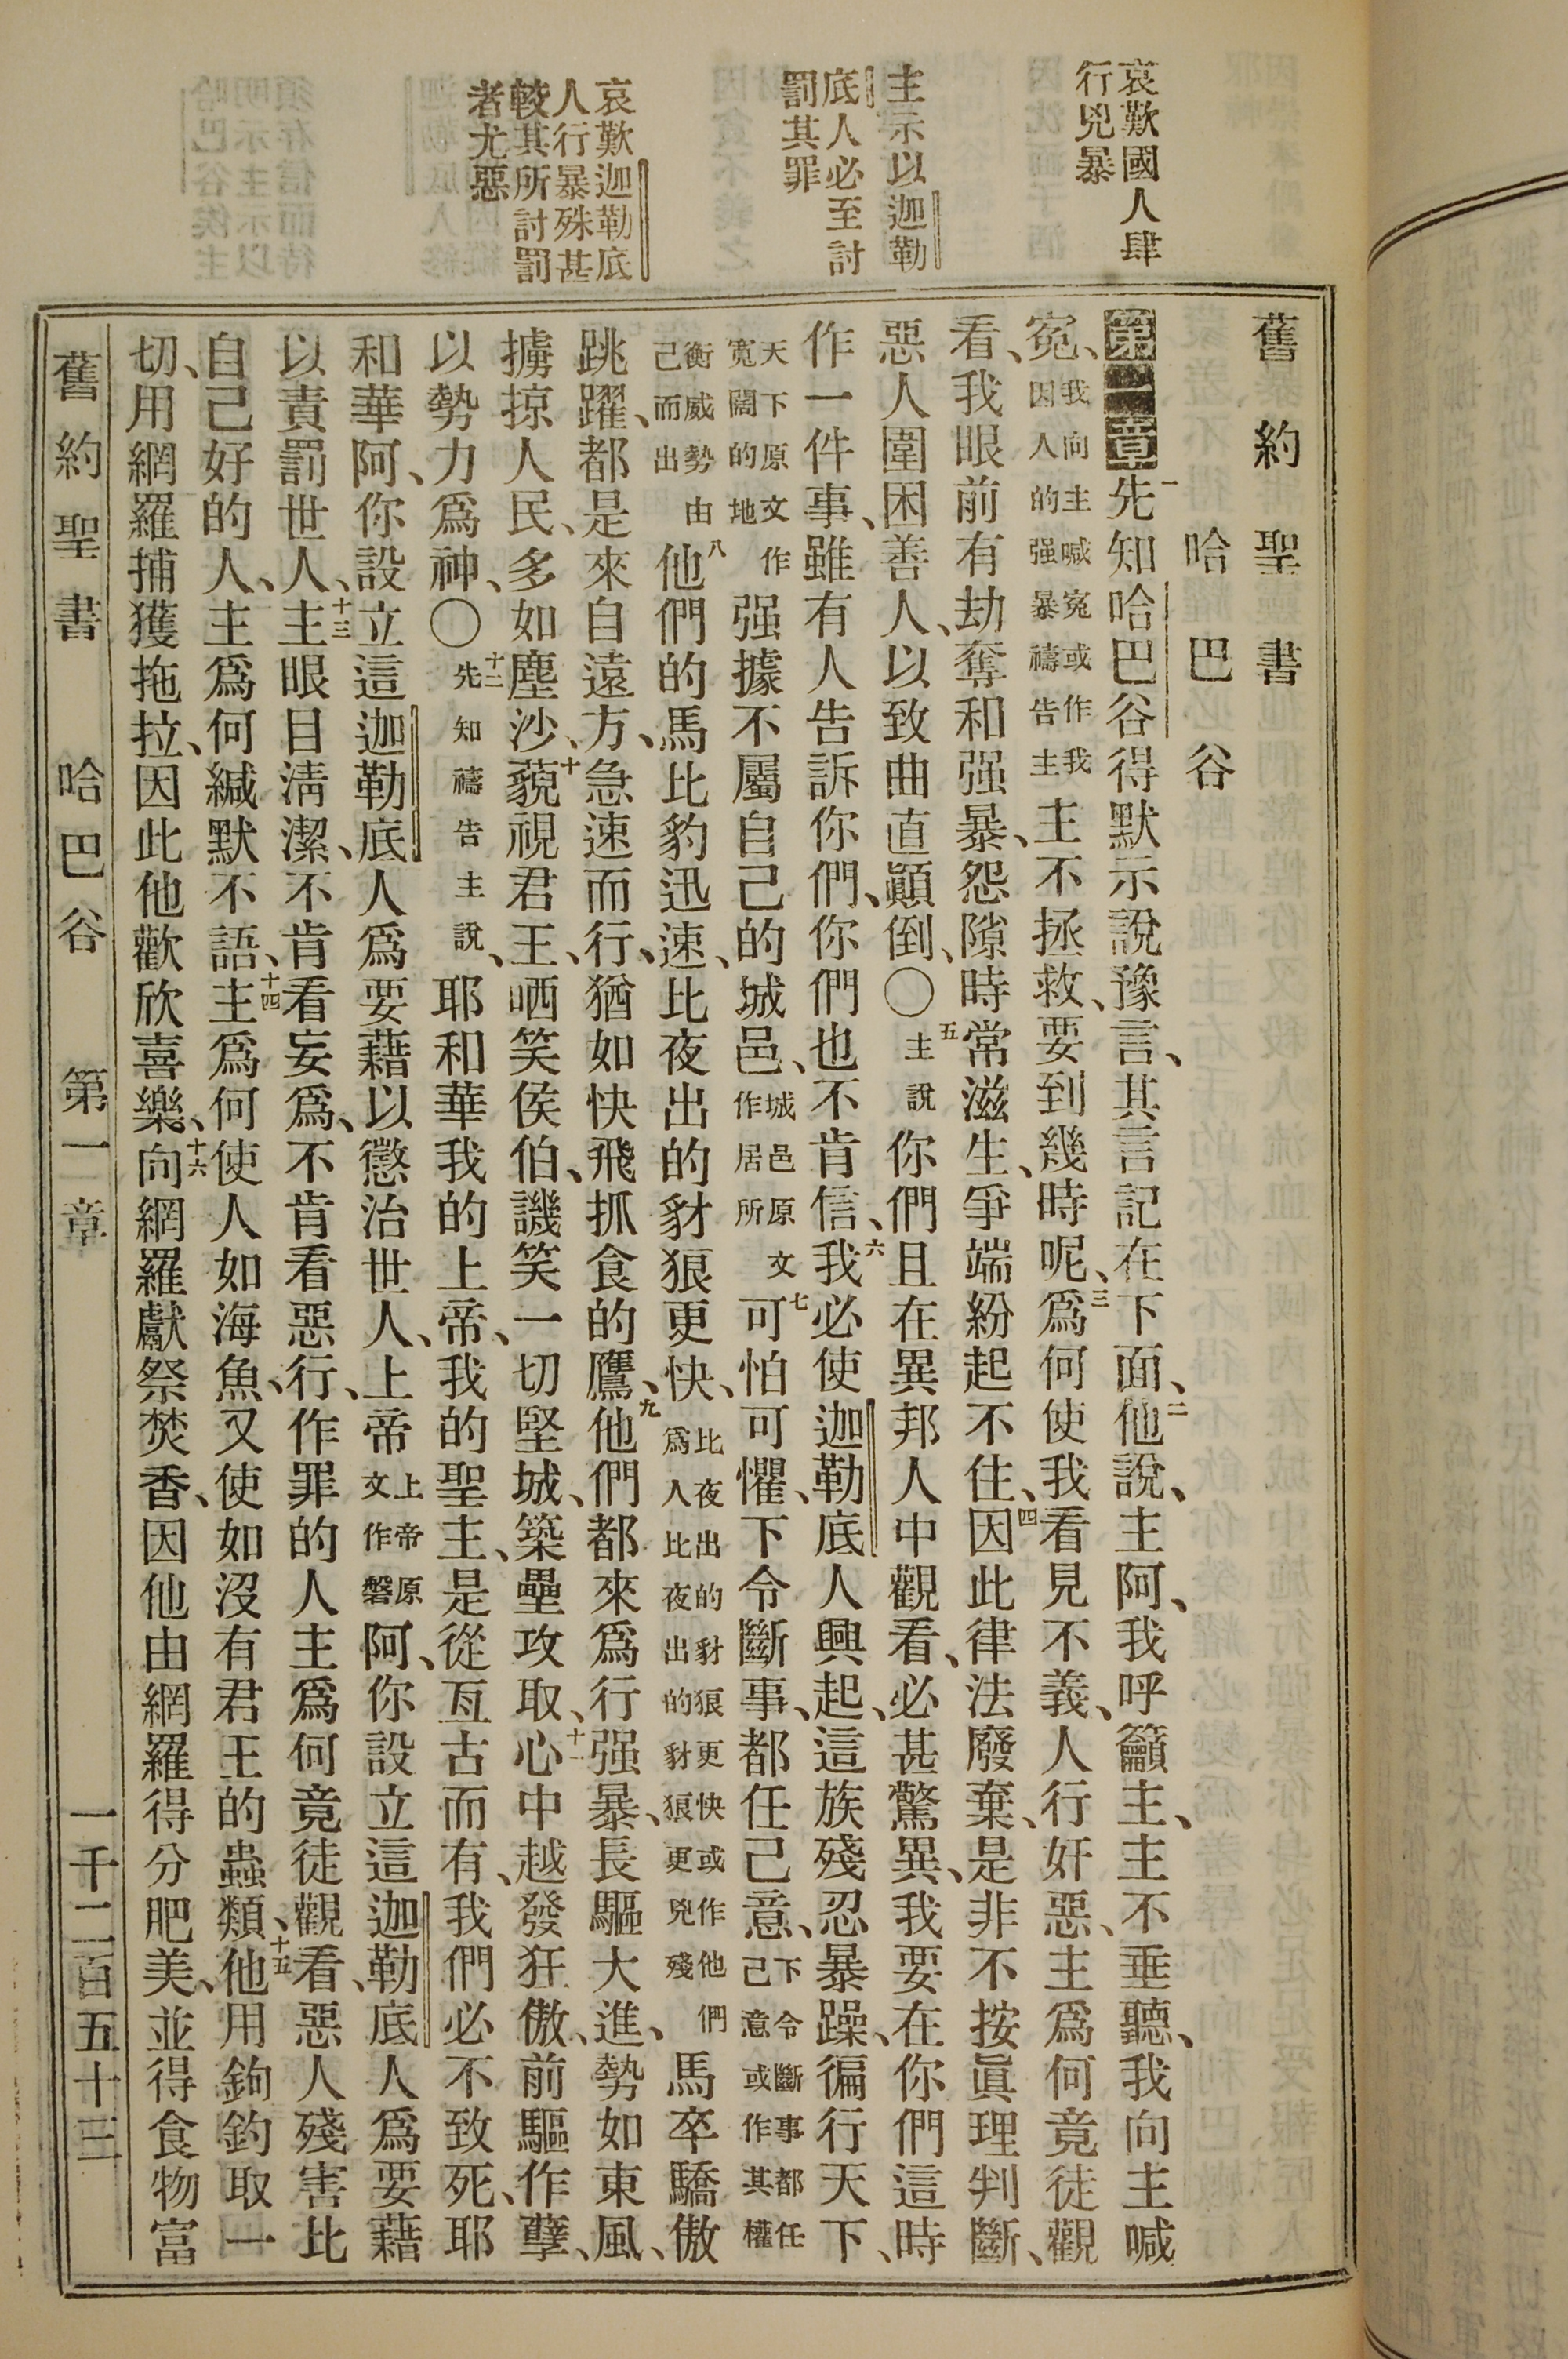 哀歎國人肆
行兇暴
主示以迦勒
底人必至討
罰其罪
哀歎迦勒底
人行暴殊甚
較其所討罰
者尤惡
舊約聖書
哈巴谷
第一章一先知哈巴谷得默示說豫言、其言記在下面、二他說、主阿、我呼籲主、主不垂聽、我向主喊
冤、我向主喊冤或作我因人的强暴禱告主主不拯救、要到幾時呢、三爲何使我看見不義、人行奸惡、主爲何竟徒觀
看、我眼前有劫奪和强暴、怨隙時常滋生、爭端紛起不住、四因此律法廢棄、是非不按眞理判斷、
惡人圍困善人、以致曲直顚倒、〇五主說你們且在異邦人中觀看、必甚驚異、我要在你們這時
作一件事、雖有人告訴你們、你們也不肯信、六我必使迦勒底人興起、這族殘忍暴躁、徧行天下、
天下原文作寬闊的地强據不屬自己的城邑、城邑原文作居所七可怕可懼、下令斷事、都任己意、下令斷事都任己意或作其權
衡威勢由己而出八他們的馬比豹迅速、比夜出的豺狼更快、比夜出的豺狼更快或作他們爲人比夜出的豺狼更兇殘馬卒驕傲
跳躍、都是來自遠方、急速而行、猶如快飛抓食的鷹、九他們都來爲行强暴、長驅大進、勢如東風、
擄掠人民、多如塵沙、十藐視君王、哂笑侯伯、譏笑一切堅城、築壘攻取、十一心中越發狂傲、前驅作孽、
以勢力爲神、〇十二先知禱告主說、耶和華我的上帝、我的聖主、是從亙古而有、我們必不致死、耶
和華阿、你設立這迦勒底人爲要藉以懲治世人、上帝上帝原文作磐阿、你設立這迦勒底人爲要藉
以責罰世人、十三主眼目淸潔、不肯看妄爲、不肯看惡行、作罪的人主爲何竟徒觀看、惡人殘害比
自己好的人、主爲何緘默不語、十四主爲何使人如海魚、又使如沒有君王的蟲類、十五他用鉤釣取一
切、用網羅捕獲拖拉、因此他歡欣喜樂、十六向網羅獻祭焚香、因他由網羅得分肥美、並得食物富
舊約聖書 哈巴谷 第一章 一千二百五十三